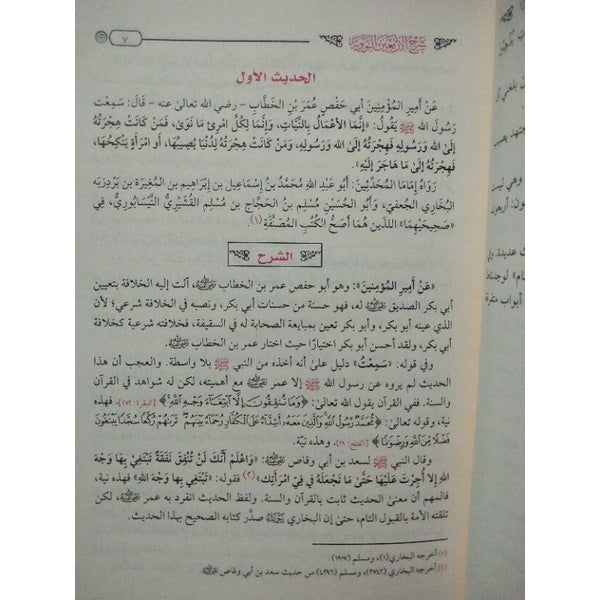 شرح الأربعين النووية
٧
الحديث الأول
عَنْ أَمِيرِ المُؤْمِنِينَ أَبِي حَفْصٍ عُمَرَ بْنِ الخَطَّابِ - رضي الله تعالى عنه - قَالَ: سَمِعْت
رَسُولَ الله ﷺ يَقُولُ: «إِنَّمَا الأَعْمَالُ بِالنِّيَّاتِ، وَإِنَّمَا لِكُلِّ امْرِئٍ مَا نَوَى، فَمَنْ كَانَتْ هِجْرَتُهُ
إِلَى الله وَرَسُولِهِ فَهِجْرَتُهُ إِلَى الله وَرَسُولِهِ، وَمَنْ كَانَتْ هِجْرَتُهُ لِدُنْيَا يُصِيبُهَا، أَو امْرَأَةٍ يَنْكِحُهَا،
فَهِجْرَتُهُ إِلَى مَا هَاجَرَ إِلَيْهِ».
رَوَاهُ إِمَامَا المُحَدِّثِينَ: أَبُو عَبْدِ الله مُحَمَّدُ بنُ إِسْمَاعِيل بن إِبْرَاهِيم بن المُغِيرَة بن بَرْدِزبَه
البُخَارِي الجُعفِيُّ، وَأَبُو الحُسَيْنِ مُسْلِم بنُ الحَجَّاج بن مُسْلِم القُشَيْرِيُّ النَّيْسَابُورِيُّ، فِي
«صَحِيحَيْهِمَا» اللذَين هُمَا أَصَحُّ الكُتُبِ المُصَنَّفَةِ (١)
الشرح
«عَنْ أَمِيرِ المُؤْمِنِينَ»: وهو أبو حفص عمر بن الخطاب، آلت إليه الخلافة بتعيين
أبي بكر الصديق ﷺ له، فهو حسنة من حسنات أبي بكر، ونصبه في الخلافة شرعي؛ لأن
الذي عينه أبو بكر، وأبو بكر تعين بمبايعة الصحابة له في السقيفة، فخلافته شرعية كخلافة
أبي بكر، ولقد أحسن أبو بكر اختيارًا حيث اختار عمر بن الخطاب
وفي قوله: «سَمِعْتُ» دليل على أنه أخذه من النبي ﷺ بلا واسطة. والعجب أن هذا
الحديث لم يروه عن رسول الله ﷺ إلا عمر مع أهميته، لكن له شواهد في القرآن
والسنة. ففي القرآن يقول الله تعالى: ﴿وَمَا تُنفِقُونَ إِلَّا ابْتِغَاءَ وَجْهِ اللَّهِ﴾ [البقرة: ٢٧٢]، فهذه
نية، وقوله تعالى: ﴿مُّحَمَّدٌ رَّسُولُ اللَّهِ وَالَّذِينَ مَعَهُ أَشِدَّاءُ عَلَى الْكُفَّارِ رُحَمَاءُ بَيْنَهُمْ تَرَاهُمْ رُكَّعًا سُجَّدًا يَبْتَغُونَ
فَضْلًا مِّنَ اللَّهِ وَرِضْوَانًا﴾ [الفتح: ٢٩]، وهذه نيّة.
وقال النبي ﷺ لسعد بن أبي وقاص: «وَاعْلَمْ أَنَّكَ لَنْ تُنْفِقَ نَفَقَةً تَبْتَغِي بِهَا وَجْهَ
اللهِ إِلا أُجِرْتَ عَلَيْهَا حَتَّى مَا تَجْعَلُهُ فِي فِيْ امْرَأَتِك» (٢) فقوله: «تَبْتَغِي بِهَا وَجْهَ اللهِ» فهذه نية،
فالمهم أن معنى الحديث ثابت بالقرآن والسنة. ولفظ الحديث انفرد به عمر، لكن
تلقته الأمة بالقبول التام، حتى إن البخاري صدَّر كتابه الصحيح بهذا الحديث.
(١) أخرجه البخاري (١)، ومسلم (١٩٠٧)
(٢) أخرجه البخاري (٣٧٤٣)، ومسلم (٤٢٩٦) من حديث سعد بن أبي وقاص